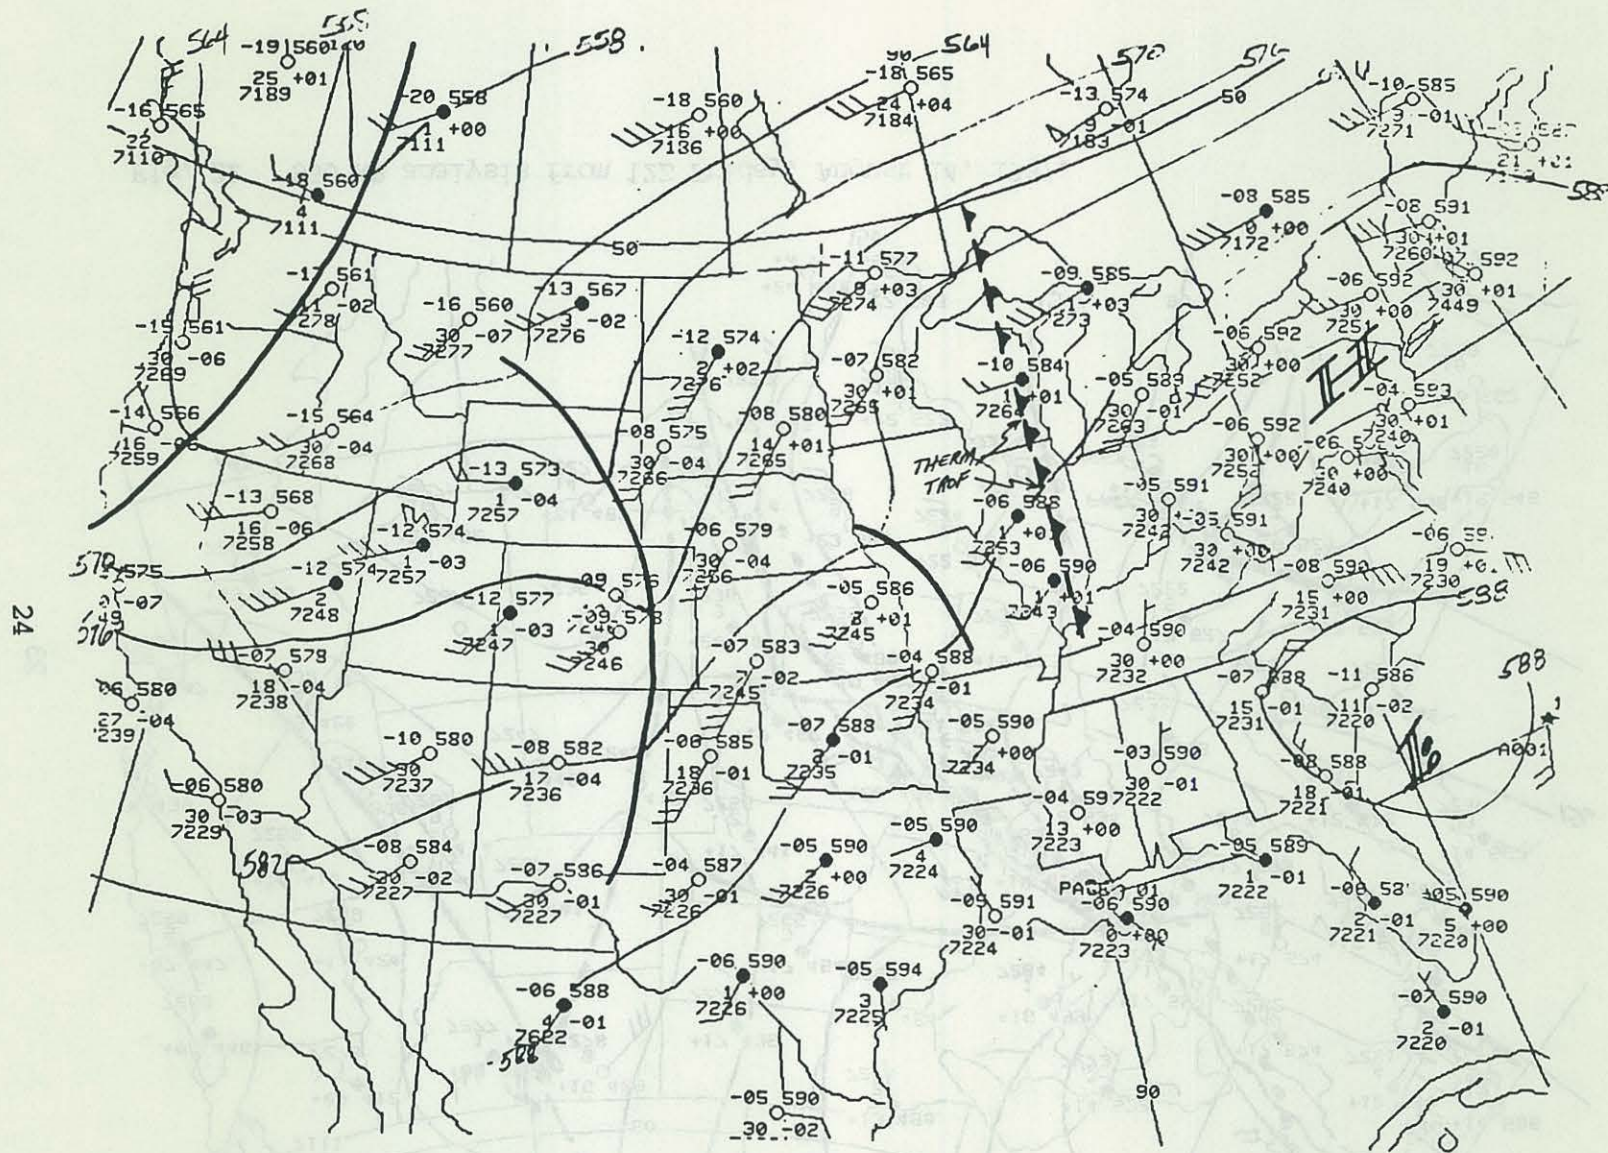 564
558
558
564
570
576
-19 560
25 +01
7189
-16 565
22
7110
-20 558
1 +00
7111
-18 560
16 +00
7136
-18 565
24 +04
7184
-13 574
9 -01
7183
50
-10 585
-01
7271
21 +01
-18 560
4
7111
-08 585
0 +00
7172
-08 591
30 +01
7260
592
30 +01
7449
50
-17 561
11 -02
278
-16 560
30 -07
7277
-13 567
3 -02
7276
-11 577
9 +03
7274
-09 585
1 +03
273
-06 592
30 +00
7251
-15 561
30 -06
7289
-12 574
2 +02
7276
-07 582
30 +01
7265
-10 584
1 +01
7264
-05 589
30 -01
7263
-06 592
30 +00
7252
H
-04 593
30 +01
7240
-14 566
16 -06
7259
-15 564
30 -04
7268
-08 575
30 -04
7266
-08 580
14 +01
7265
THERM.
TROF
-06 592
30 +00
725
-06
30 +00
7240
-13 568
16 -06
7258
-13 573
1 -04
7257
-06 588
1
7253
-05 591
30
7242
-05 591
30 +00
7242
-12 574
1 -03
7257
-06 579
30 -04
7256
-06 59
19 +0
7230
570
575
-07
-12 574
2
7248
-12 577
1 -03
7247
-09 576
-09 578
30
7246
-05 586
3 +01
7245
-06 590
1 +01
7243
-08 590
15 +00
7231
588
576
-07 579
18 -04
7238
-07 583
7 -02
7245
-04 588
7 -01
7234
-04 590
30 +00
7232
-07 588
15 -01
7231
-11 586
11 -02
7220
588
06 580
27 -04
239
-10 580
30
7237
-08 582
17 -04
7236
-06 585
18 -01
7236
-07 588
2 -01
7235
-05 590
7 +00
7234
-03 590
30 -01
7222
-08 588
18 -01
7221
A001
-06 580
30 -03
7229
582
-08 584
30 -02
7227
-07 586
30 -01
7227
-04 587
30 -01
7226
-05 590
2 +00
7226
-05 590
4
7224
-04 59
13 +00
7223
-05 589
1 -01
7222
-05 591
30 -01
7224
-06 590
0 +00
7223
-06 58
2 -01
7221
-05 590
5 +00
7220
-06 588
4 -01
7622
588
-06 590
1 +00
7226
-05 594
3
7225
-07 590
2 -01
7220
-05 590
30 -02
90
24